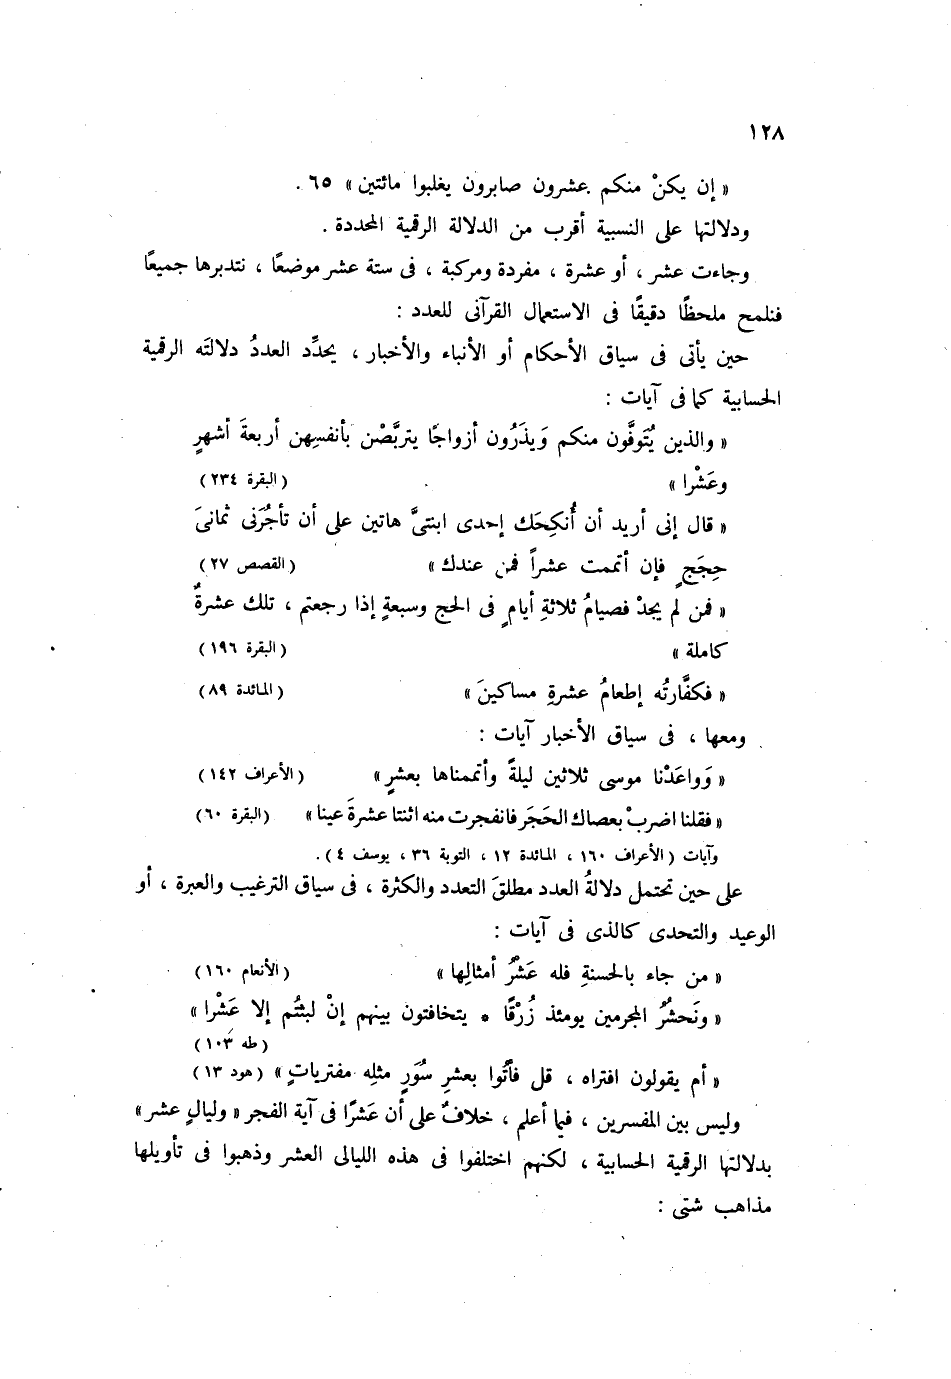 ١٢٨
« إن يكنْ منكم عشرون صابرون يغلبوا مائتين » ٦٥ .
ودلالتها على النسبية أقرب من الدلالة الرقمية المحددة .
وجاءت عشر ، أو عشرة ، مفردة ومركبة ، فى ستة عشر موضعًا ، نتدبرها جميعًا
فنلمح ملحظًا دقيقًا فى الاستعمال القرآنى للعدد :
حين يأتى فى سياق الأحكام أو الأنباء والأخبار ، يحدِّد العددُ دلالتَه الرقمية
الحسابية كما فى آيات :
« والذين يُتَوفَّون منكم وَيذَرُون أزواجًا يتربَّصْن بأنفسِهن أربعةَ أشهرٍ
وعَشْرا » ( البقرة ٢٣٤ )
« قال إنى أريد أن أُنكِحَك إحدى ابنتىَّ هاتين على أن تأجُرَنى ثمانىَ
حِجَجٍ فإن أتممت عشراً فمن عندك » ( القصص ٢٧ )
« فمن لم يجدْ فصيامُ ثلاثةِ أيامٍ فى الحج وسبعةٍ إذا رجعتم ، تلك عشرةٌ
كاملة » ( البقرة ١٩٦ )
« فكفَّارتُه إطعامُ عشرةِ مساكينَ » ( المائدة ٨٩ )
ومعها ، فى سياق الأخبار آيات :
« وَواعَدْنا موسى ثلاثين ليلةً وأتممناها بعشرٍ » ( الأعراف ١٤٢ )
« فقلنا اضربْ بعصاك الحَجَر فانفجرت منه اثنتا عشرةَ عينا » ( البقرة ٦٠ )
وآيات ( الأعراف ١٦٠ ، المائدة ١٢ ، التوبة ٣٦ ، يوسف ٤ ) .
على حين تحتمل دلالةُ العدد مطلقَ التعدد والكثرة ، فى سياق الترغيب والعبرة ، أو
الوعيد والتحدى كالذى فى آيات :
« من جاء بالحسنةِ فله عَشْرُ أمثالِها » ( الأنعام ١٦٠ )
« ونَحشُرُ المجرمين يومئذ زُرْقًا * يتخافتون بينهم إنْ لبثتُم إلا عَشْرا »
( طه ١٠٣ )
« أم يقولون افتراه ، قل فأْتُوا بعشرِ سُوَرٍ مثلِه مفترياتٍ » ( هود ١٣ )
وليس بين المفسرين ، فيما أعلم ، خلافٌ على أن عَشْرًا فى آية الفجر « وليالٍ عشر »
بدلالتها الرقمية الحسابية ، لكنهم اختلفوا فى هذه الليالى العشر وذهبوا فى تأويلها
مذاهب شتى :